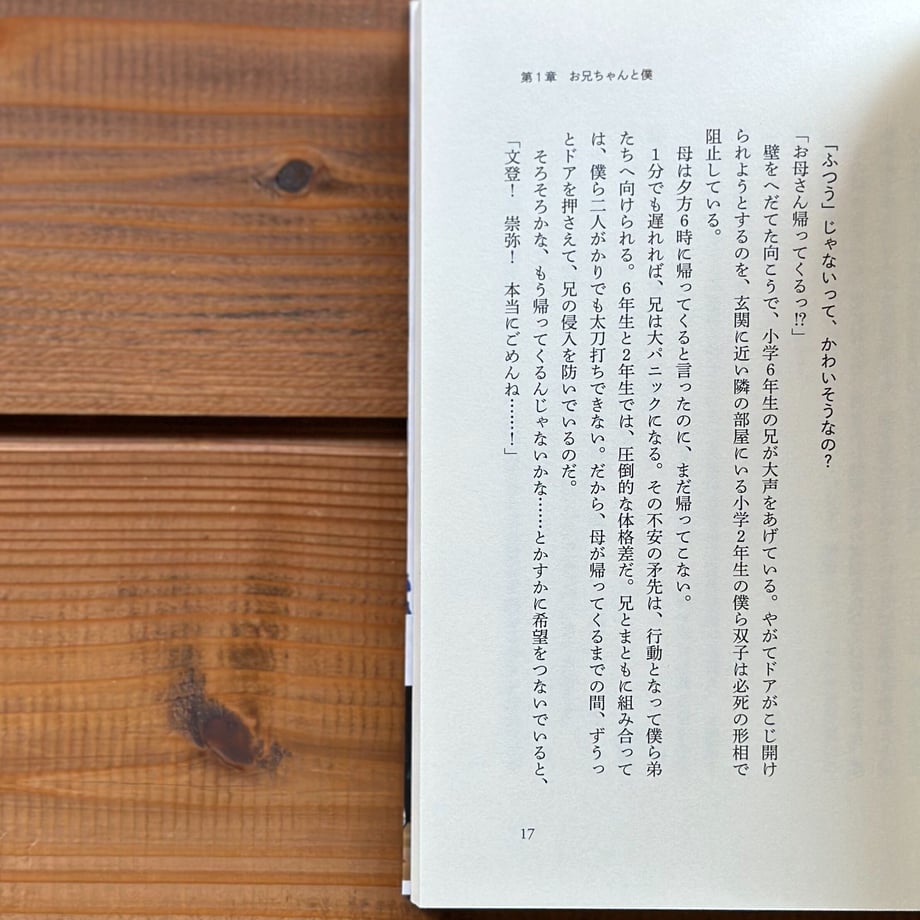 第1章　お兄ちゃんと僕
「ふつう」じゃないって、かわいそうなの？
「お母さん帰ってくるっ!?」
　壁をへだてた向こうで、小学6年生の兄が大声をあげている。やがてドアがこじ開け
られようとするのを、玄関に近い隣の部屋にいる小学2年生の僕ら双子は必死の形相で
阻止している。
　母は夕方6時に帰ってくると言ったのに、まだ帰ってこない。
　1分でも遅れれば、兄は大パニックになる。その不安の矛先は、行動となって僕ら弟
たちへ向けられる。6年生と2年生では、圧倒的な体格差だ。兄とまともに組み合って
は、僕ら二人がかりでも太刀打ちできない。だから、母が帰ってくるまでの間、ずうっ
とドアを押さえて、兄の侵入を防いでいるのだ。
　そろそろかな、もう帰ってくるんじゃないかな……とかすかに希望をつないでいると、
「文登！　崇弥！　本当にごめんね……！」
17